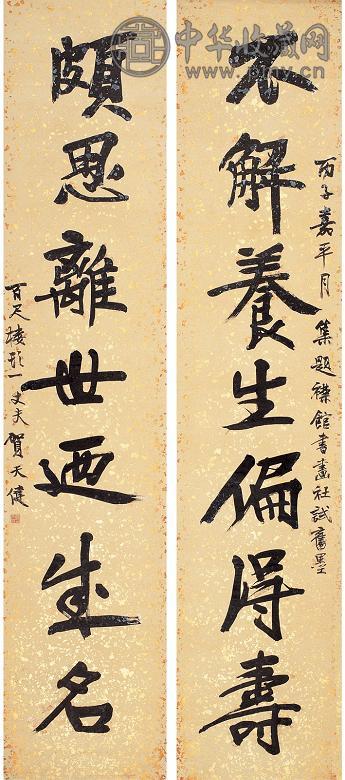 不解養生偏得壽
丙子嘉平月集題襟館書畫社試舊墨
頗思離世迺成名
百尺樓頭一丈夫賀天健
中华收藏网